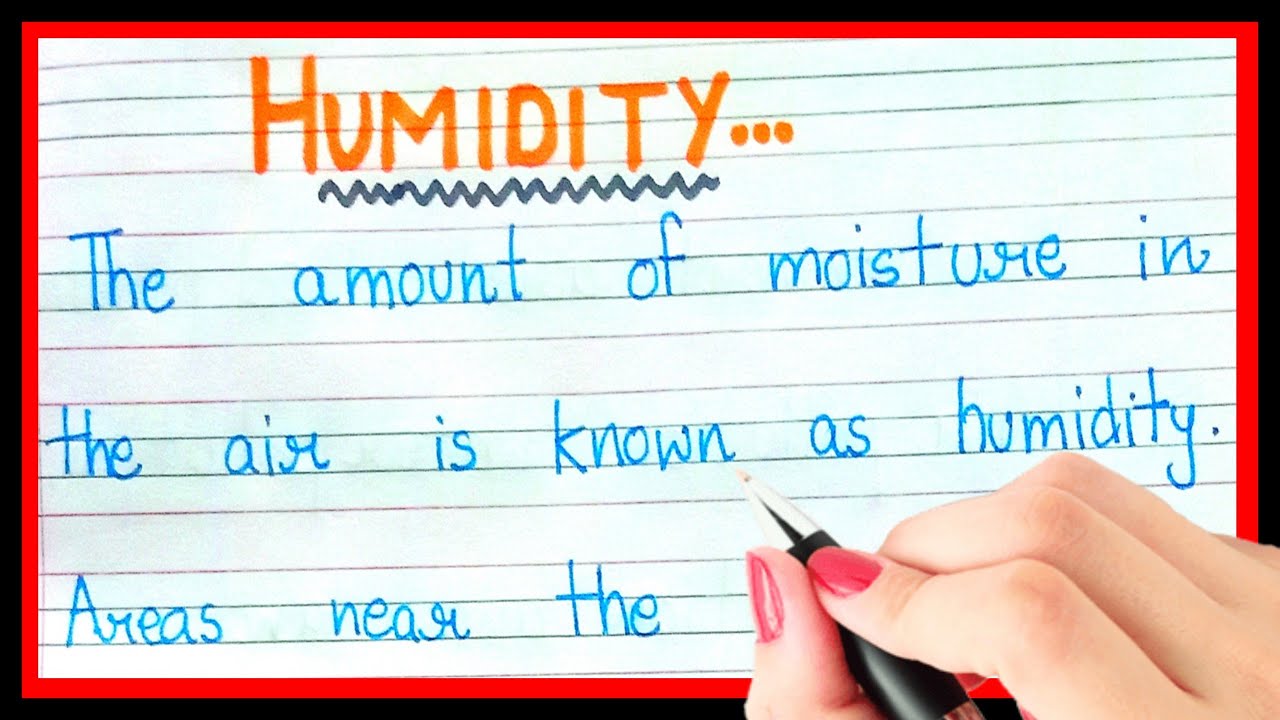 HUMIDITY...
The amount of moisture in
the air is known as humidity.
Areas near the